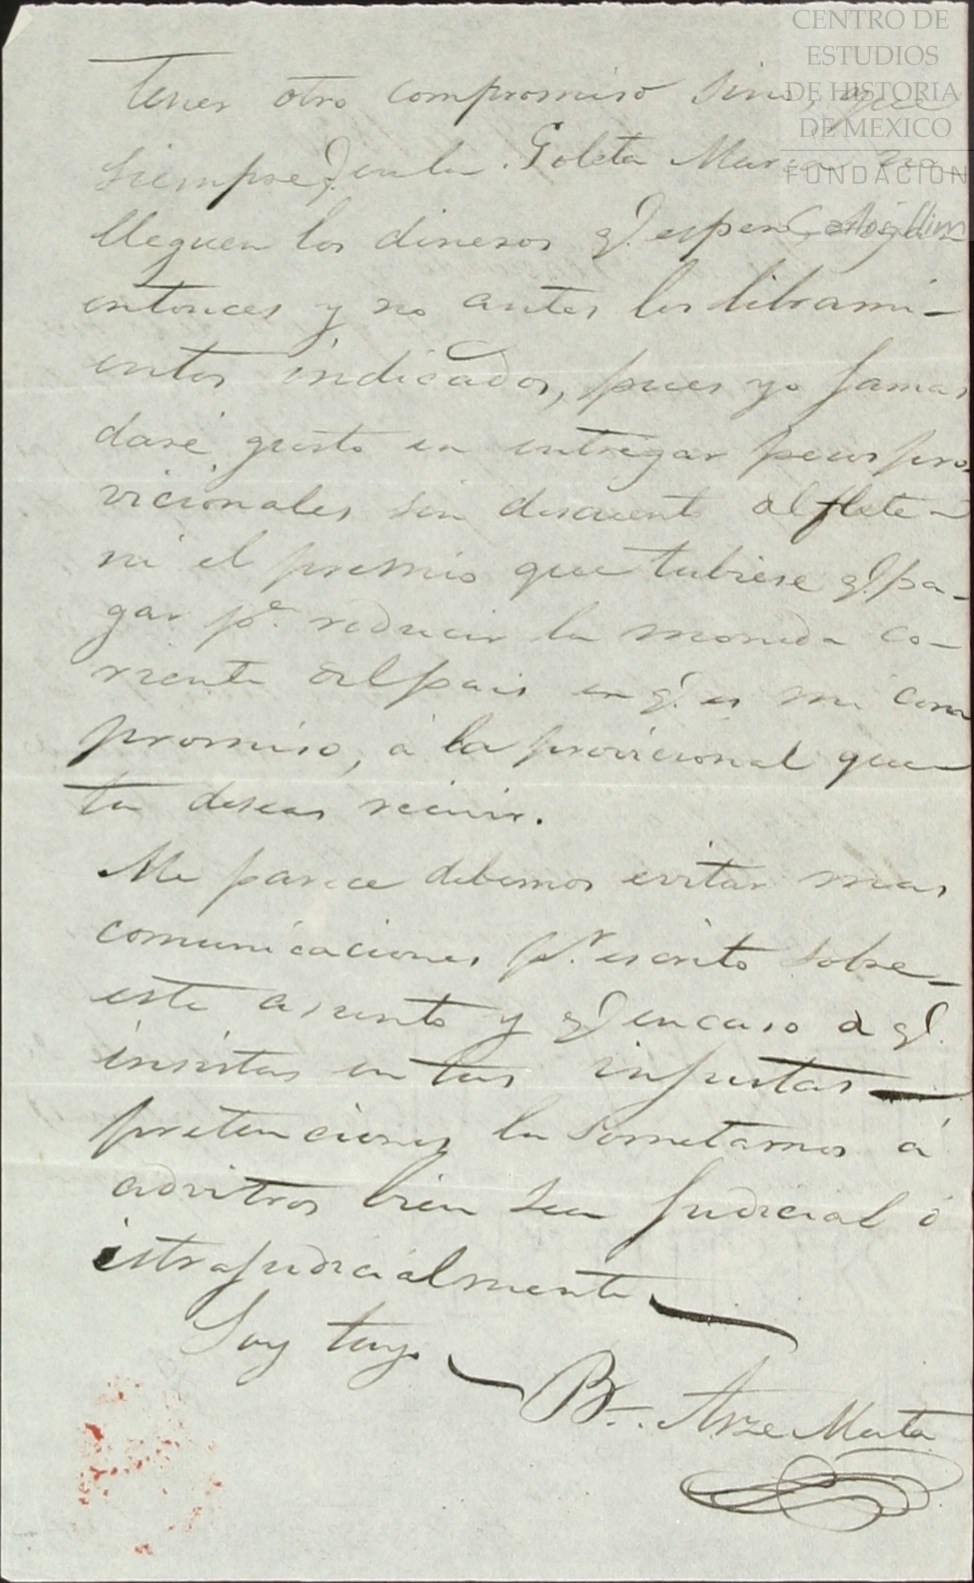 CENTRO DE
ESTUDIOS
DE HISTORIA
DE MEXICO
FUNDACION
Carlos Slim
tener otro compromiso sino, que
siempre q. en la Goleta Maria
lleguen los dineros q. espero,
entonces y no antes los librami-
entos indicados, pues yo jamas
daré gusto en entregar pesos pro
vicionales sin descuento al flete
ni el premio que tubiese q. pa-
gar pa. reducir la moneda co-
rriente del pais en q. es mi com
promiso, á la provicional que
tu deseas recivir.
Me parece debemos evitar mas
comunicaciones pr. escrito sobre
este asunto y q. en caso de q.
insistas en tus injustas
pretenciones la sometamos á
advitros bien sea judicial ó
estrajudicialmente
Soy tuyo
Br. Arze Mata